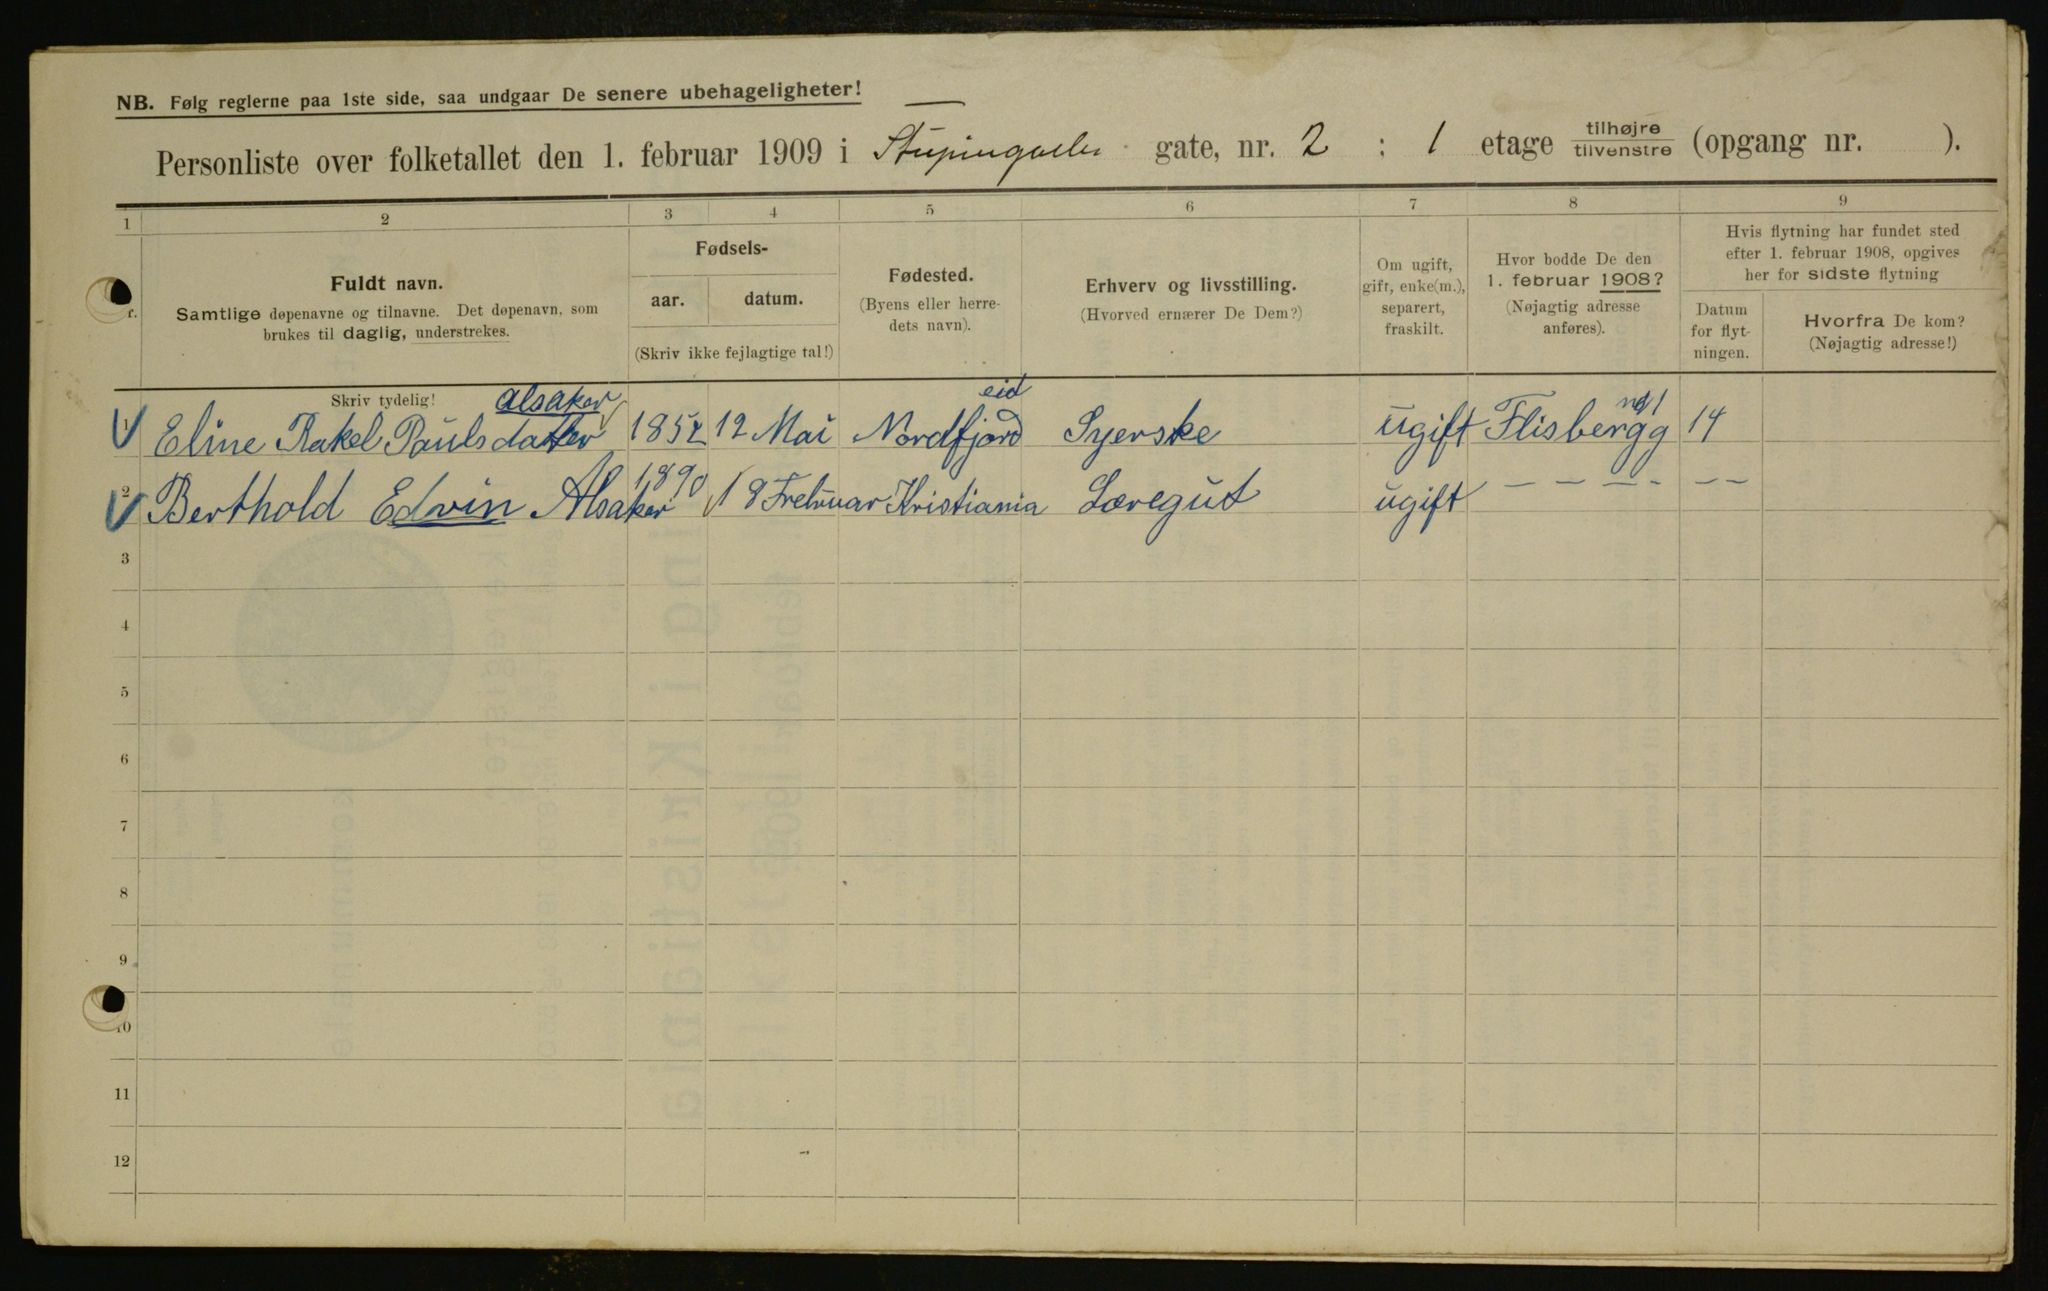 NB. Følg reglerne paa 1ste side, saa undgaar De senere ubehageligheter!
Personliste over folketallet den 1. februar 1909 i gate, nr. 2 : 1 etage tilhøjre tilvenstre (opgang nr. ).
1 2 3 4 5 6 7 8 9
Fuldt navn.
Samtlige døpenavne og tilnavne. Det døpenavn, som
brukes til daglig, understrekes.
Skriv tydelig!
Fødsels-
aar. datum.
(Skriv ikke fejlagtige tal!)
Fødested.
(Byens eller herre-
dets navn).
Erhverv og livsstilling.
(Hvorved ernærer De Dem?)
Om ugift,
gift, enke(m.),
separert,
fraskilt.
Hvor bodde De den
1. februar 1908?
(Nøjagtig adresse
anføres).
Hvis flytning har fundet sted
efter 1. februar 1908, opgives
her for sidste flytning
Datum
for flyt-
ningen.
Hvorfra De kom?
(Nøjagtig adresse!)
alsaker eid
1 Eline Rakel Paulsdatter 1852 12 Mai Nordfjord Syerske ugift Flisbergg 14
2 Berthold Edvin Alsaker 1890 18 Frebruar Kristiania Læregut ugift — — — - — —
3
4
5
6
7
8
9
10
11
12